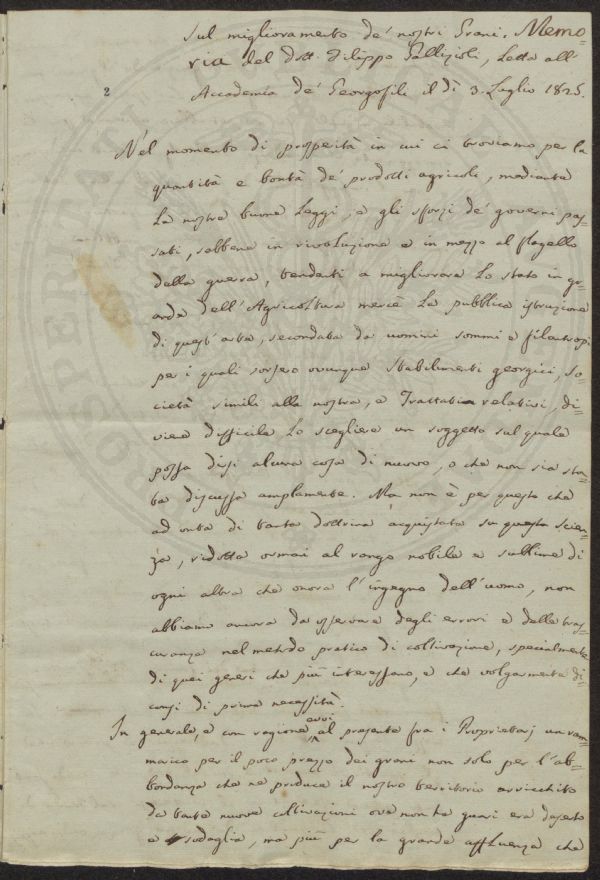 Sul miglioramento de' nostri Grani. Memo-
ria del Dott. Filippo Gallizioli, Letta all'
Accademia de' Georgofili il dì 3. Luglio 1825.
2
Nel momento di prosperità in cui ci troviamo per la
quantità e bontà de' prodotti agricoli, mediante
le nostre buone Leggi, e gli sforzi de' governi pas-
sati, sebbene in rivoluzione e in mezzo al flagello
della guerra, tendenti a migliorare lo stato in gr-
ande dell'Agricoltura mercè la pubblica istruzione
di quest'arte, secondata da uomini sommi e filantropi
per i quali sorsero ovunque stabilimenti georgici, so-
cietà simili alla nostra, e Trattati relativi, di-
viene difficile lo scegliere un soggetto sul quale
possa dirsi alcuna cosa di nuovo, o che non sia sta-
ta discussa ampiamente. Ma non è per questo che
ad onta di tanta dottrina acquistata su questa scien-
za, ridotta ormai al rango nobile e sublime di
ogni altra che onora l'ingegno dell'uomo, non
abbiamo ancora da osservare degli errori e delle tras-
curanze nel metodo pratico di coltivazione, specialmente
di quei generi che più interessano, e che volgarmente di-
consi di prima necessità.
In generale, e con ragione evvi al presente fra i Proprietarj un ram-
marico per il poco prezzo dei grani non solo per l'ab-
bondanza che ne produce il nostro territorio arricchito
da tante nuove coltivazioni ove non ha guari era deserto
e sodaglia, ma più per la grande affluenza che